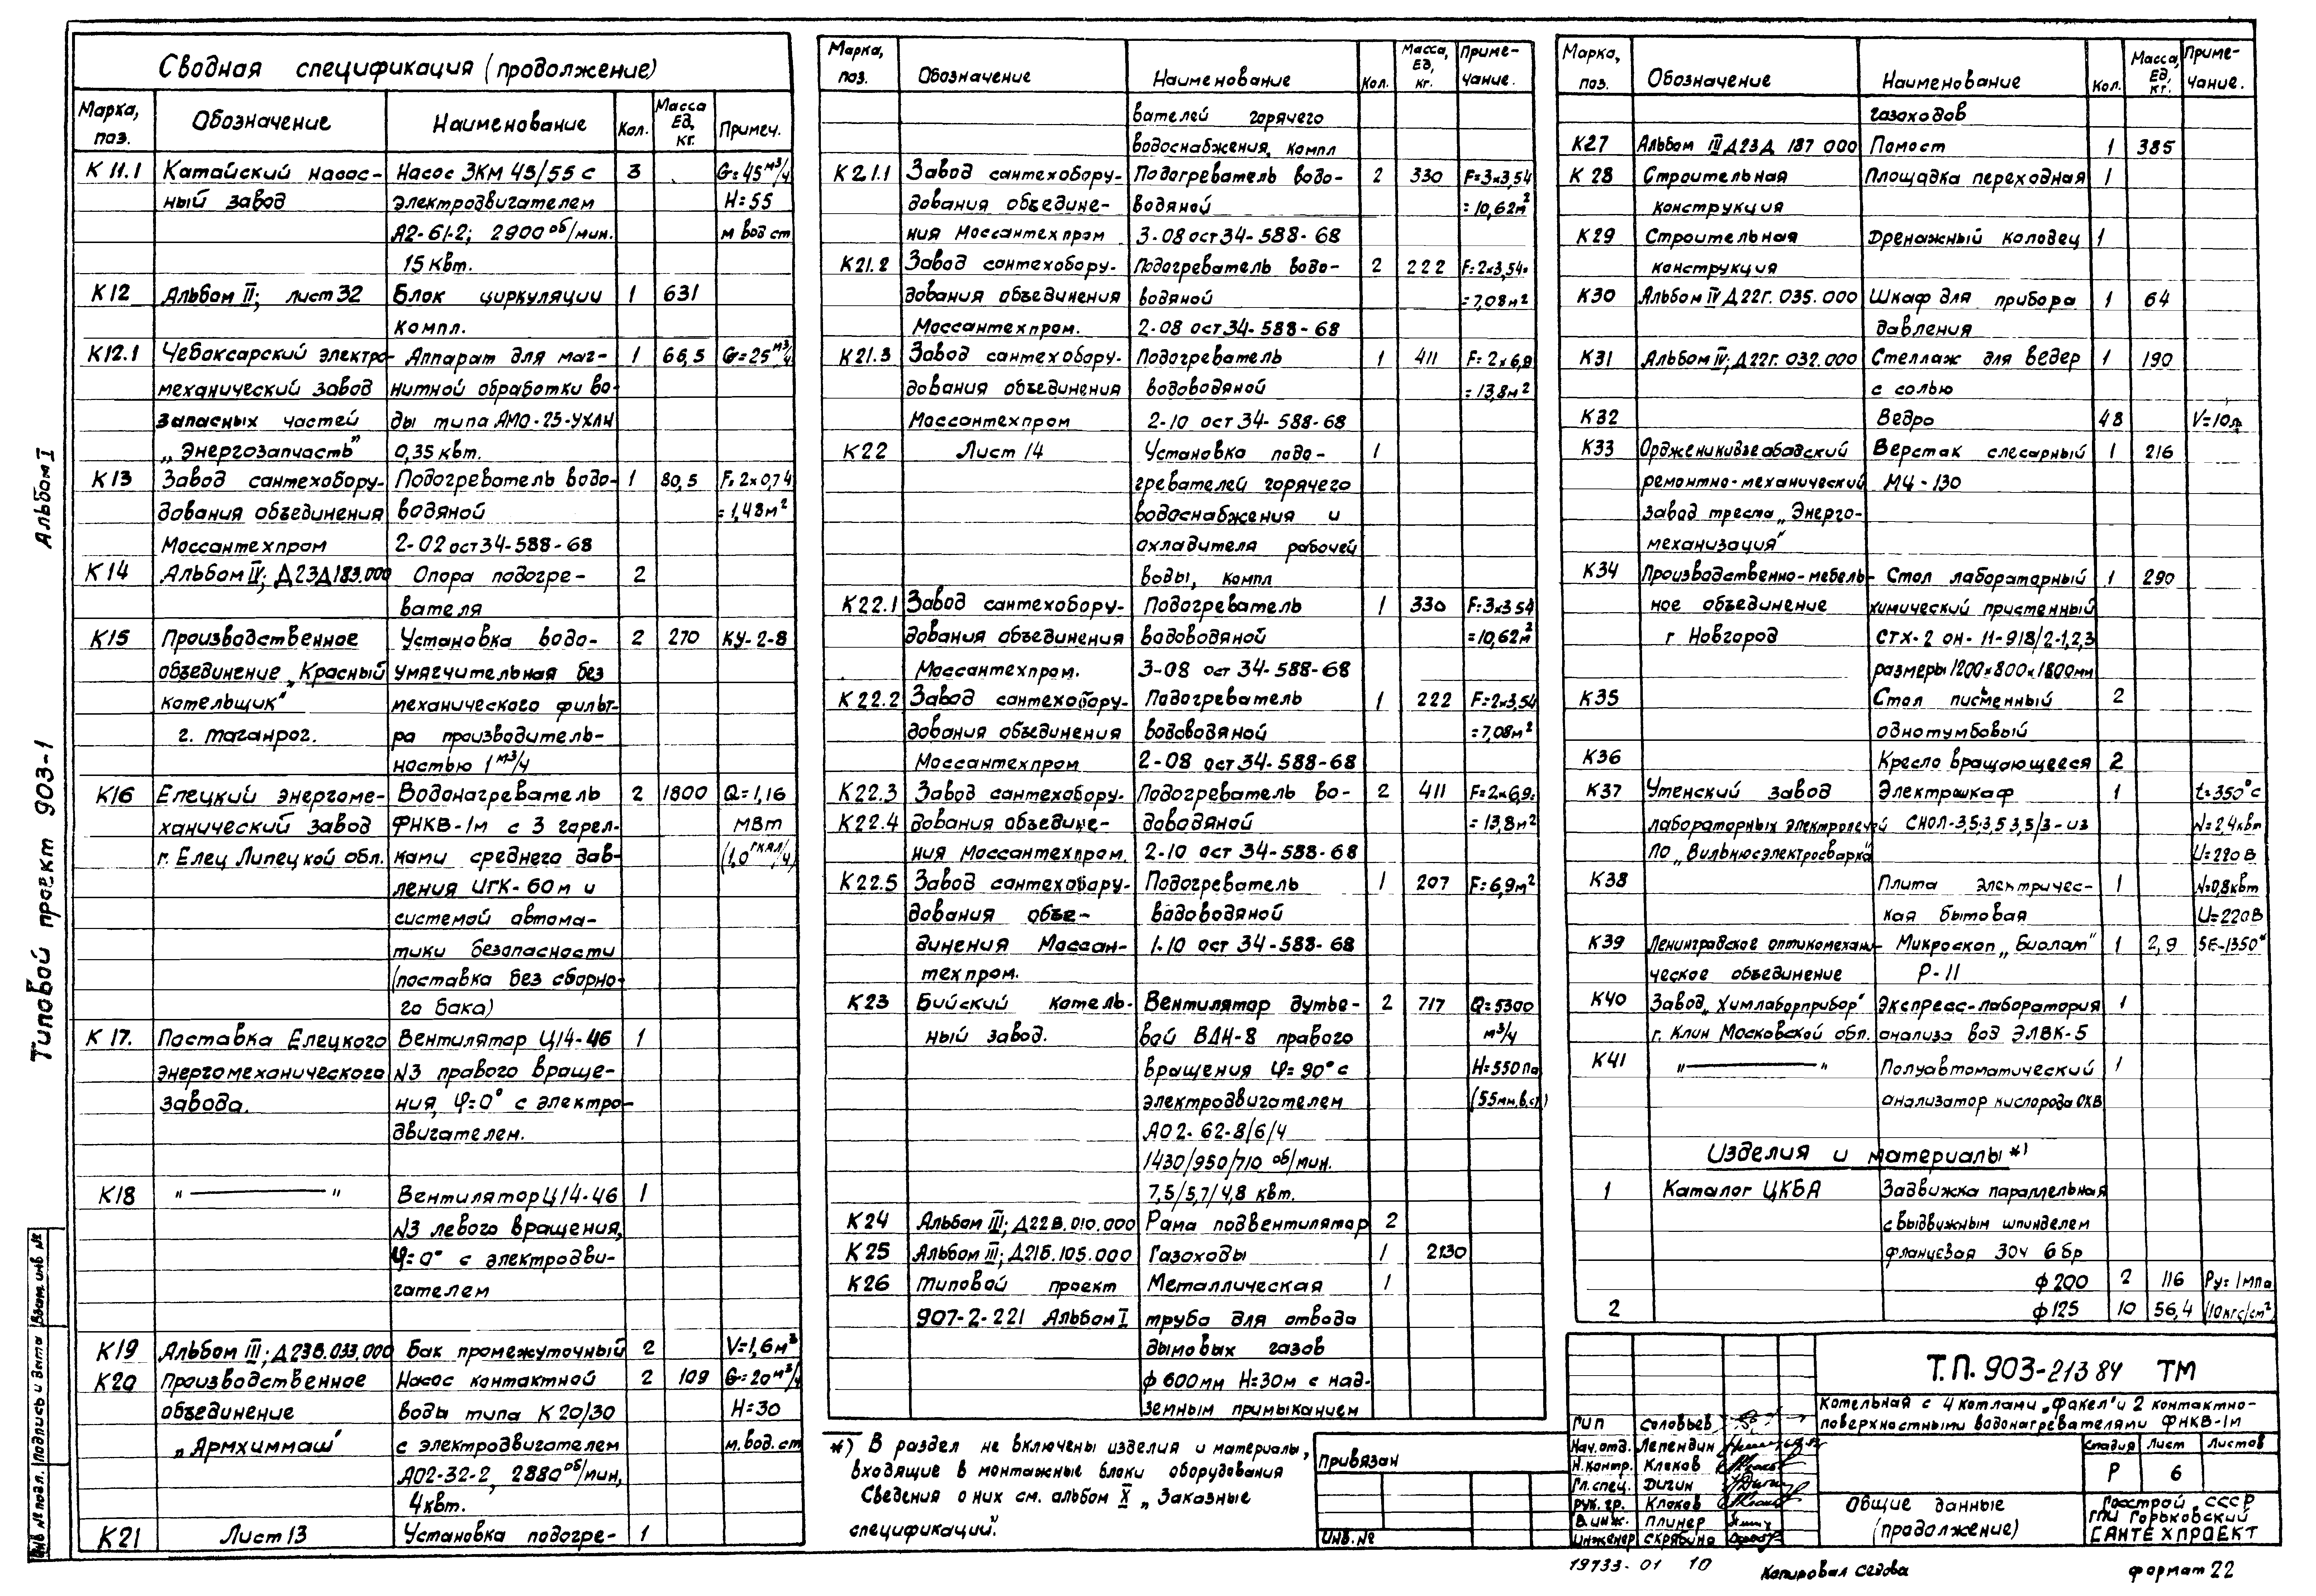 Сводная спецификация (продолжение)
Марка, поз. Обозначение Наименование Кол. Масса Ед, кг. Примеч.
К 11.1 Катайский насос- Насос 3КМ 45/55 с 3 G=45 м³/ч
ный завод электродвигателем H=55
А2-61-2; 2900 об/мин. м вод ст
15 квт.
К12 Альбом II; лист 32 Блок циркуляции 1 631
компл.
К12.1 Чебоксарский электро- Аппарат для маг- 1 66,5 G=25 м³/ч
механический завод нитной обработки во-
запасных частей ды типа АМО-25-УХЛ4
„Энергозапчасть" 0,35 квт.
К13 Завод сантехобору- Подогреватель водо- 1 80,5 F=2х0,74
дования объединения водяной =1,48м²
Моссантехпром 2-02 ост 34-588-68
К14 Альбом IV; Д23Д183.000 Опора подогре- 2
вателя
К15 Производственное Установка водо- 2 270 КУ-2-8
объединение „Красный умягчительная без
котельщик" механического фильт-
г. Таганрог. ра производитель-
ностью 1 м³/ч
К16 Елецкий энергоме- Водонагреватель 2 1800 Q=1,16
ханический завод ФНКВ-1м с 3 горел- МВт
г. Елец Липецкой обл. ками среднего дав- (1,0 гкал/ч)
ления ИГК-60м и
системой автома-
тики безопасности
(поставка без сборно-
го бака)
К 17. Поставка Елецкого Вентилятор Ц14-46 1
энергомеханического N3 правого враще-
завода. ния, φ=0° с электро-
двигателем.
К18 „ —— " Вентилятор Ц14-46 1
N3 левого вращения,
φ=0° с электродви-
гателем
К19 Альбом III; Д23В.033.000 Бак промежуточный 2 V=1,6м³
К20 Производственное Насос контактной 2 109 G=20м³/ч
объединение воды типа К20/30 H=30
„Армхиммаш" с электродвигателем м.вод.ст
А02-32-2, 2880 об/мин,
4 квт.
К21 Лист 13 Установка подогре- 1
Марка, поз. Обозначение Наименование Кол. Масса, Ед, кг. Приме-чание.
вателей горячего
водоснабжения, компл
К21.1 Завод сантехобору- Подогреватель водо- 2 330 F=3х3,54
дования объедине- водяной =10,62м²
ния Моссантехпром 3-08 ост 34-588-68
К21.2 Завод сантехобору- Подогреватель водо- 2 222 F=2х3,54=
дования объединения водяной =7,08м²
Моссантехпром. 2-08 ост 34-588-68
К21.3 Завод сантехобору- Подогреватель 1 411 F=2х6,9
дования объединения водоводяной =13,8м²
Моссантехпром 2-10 ост 34-588-68
К22 Лист 14 Установка подо- 1
гревателей горячего
водоснабжения и
охладителя рабочей
воды, компл
К22.1 Завод сантехобору- Подогреватель 1 330 F=3х3,54
дования объединения водоводяной =10,62м²
Моссантехпром. 3-08 ост 34-588-68
К22.2 Завод сантехобору- Подогреватель 1 222 F=2х3,54
дования объединения водоводяной =7,08м²
Моссантехпром 2-08 ост 34-588-68
К22.3 Завод сантехобору- Подогреватель во- 2 411 F=2х6,9=
К22.4 дования объедине- доводяной =13,8м²
ния Моссантехпром. 2-10 ост 34-588-68
К22.5 Завод сантехобору- Подогреватель 1 207 F=6,9м²
дования объе- водоводяной
динения Моссан- 1-10 ост 34-588-68
техпром.
К23 Бийский котель- Вентилятор дутье- 2 717 Q=5300
ный завод. вой ВДН-8 правого м³/ч
вращения φ=90° с H=550Па
электродвигателем (55мм.в.ст)
А02-62-8/6/4
1430/950/710 об/мин.
7,5/5,7/4,8 квт.
К24 Альбом III; Д22В.010.000 Рама подвентилятор 2
К25 Альбом III; Д21Б.105.000 Газоходы 1 2130
К26 Типовой проект Металлическая 1
907-2-221 Альбом I труба для отвода
дымовых газов
ф 600мм H=30м с над-
земным примыканием
*) В раздел не включены изделия и материалы,
входящие в монтажные блоки оборудования
Сведения о них см. альбом X „Заказные
спецификации".
Марка, поз. Обозначение Наименование Кол. Масса, Ед, кг. Приме-чание.
газоходов
К27 Альбом III Д23Д 187 000 Помост 1 385
К 28 Строительная Площадка переходная 1
конструкция
К29 Строительная Дренажный колодец 1
конструкция
К30 Альбом IV Д22Г. 035.000 Шкаф для прибора 1 64
давления
К31 Альбом IV; Д22Г. 032.000 Стеллаж для ведер 1 190
с солью
К32 Ведро 48 V=10л
К33 Орджоникидзеабадский Верстак слесарный 1 216
ремонтно-механический М4-130
завод треста „Энерго-
механизация"
К34 Производственно-мебель- Стол лабораторный 1 290
ное объединение химический пристенный
г Новгород СТХ-2 он-11-918/2-1,2,3
размеры 1200х800х1800мм
К35 Стол письменный 2
однотумбовый
К36 Кресло вращающееся 2
К37 Утенский завод Электрошкаф 1 t=350°с
лабораторных электропечей СНОЛ-3,5.3,5 3,5/3-из N=2,4квт
ПО „Вильнюсэлектросварка" U=220 В
К38 Плита электричес- 1 N=0,8квт
кая бытовая U=220В
К39 Ленинградское оптикомехани- Микроскоп „Биолам" 1 2,9 5Е-1350*
ческое объединение Р-11
К40 Завод „Химлаборприбор" Экспресс-лаборатория 1
г. Клин Московской обл. анализа вод ЭЛВК-5
К41 „ —— " Полуавтоматический 1
анализатор кислорода ОКВ
Изделия и материалы *)
1 Каталог ЦКБА Задвижка параллельная
с выдвижным шпинделем
фланцевая 30ч 6бр
ф200 2 116 Ру=1мпа
2 ф125 10 56,4 (10кгс/см²)
Привязан
Инв.№
Т.П. 903-213 84 ТМ
Котельная с 4 котлами „Факел" и 2 контактно-
поверхностными водонагревателями ФНКВ-1м
Гип Соловьев
Нач.отд. Лепендин
Н.контр. Клоков
Гл.спец. Дигин
рук.гр. Клоков
В.инж. Плинер
Инженер Скрябина
Стадия Лист Листов
Р 6
Общие данные
(продолжение)
Госстрой СССР
ГПИ Горьковский
САНТЕХПРОЕКТ
19733-01 10
Копировал Седова
формат 22
Альбом I
Типовой проект 903-1
Взам.инв №
Подпись и дата
Инв № подл.